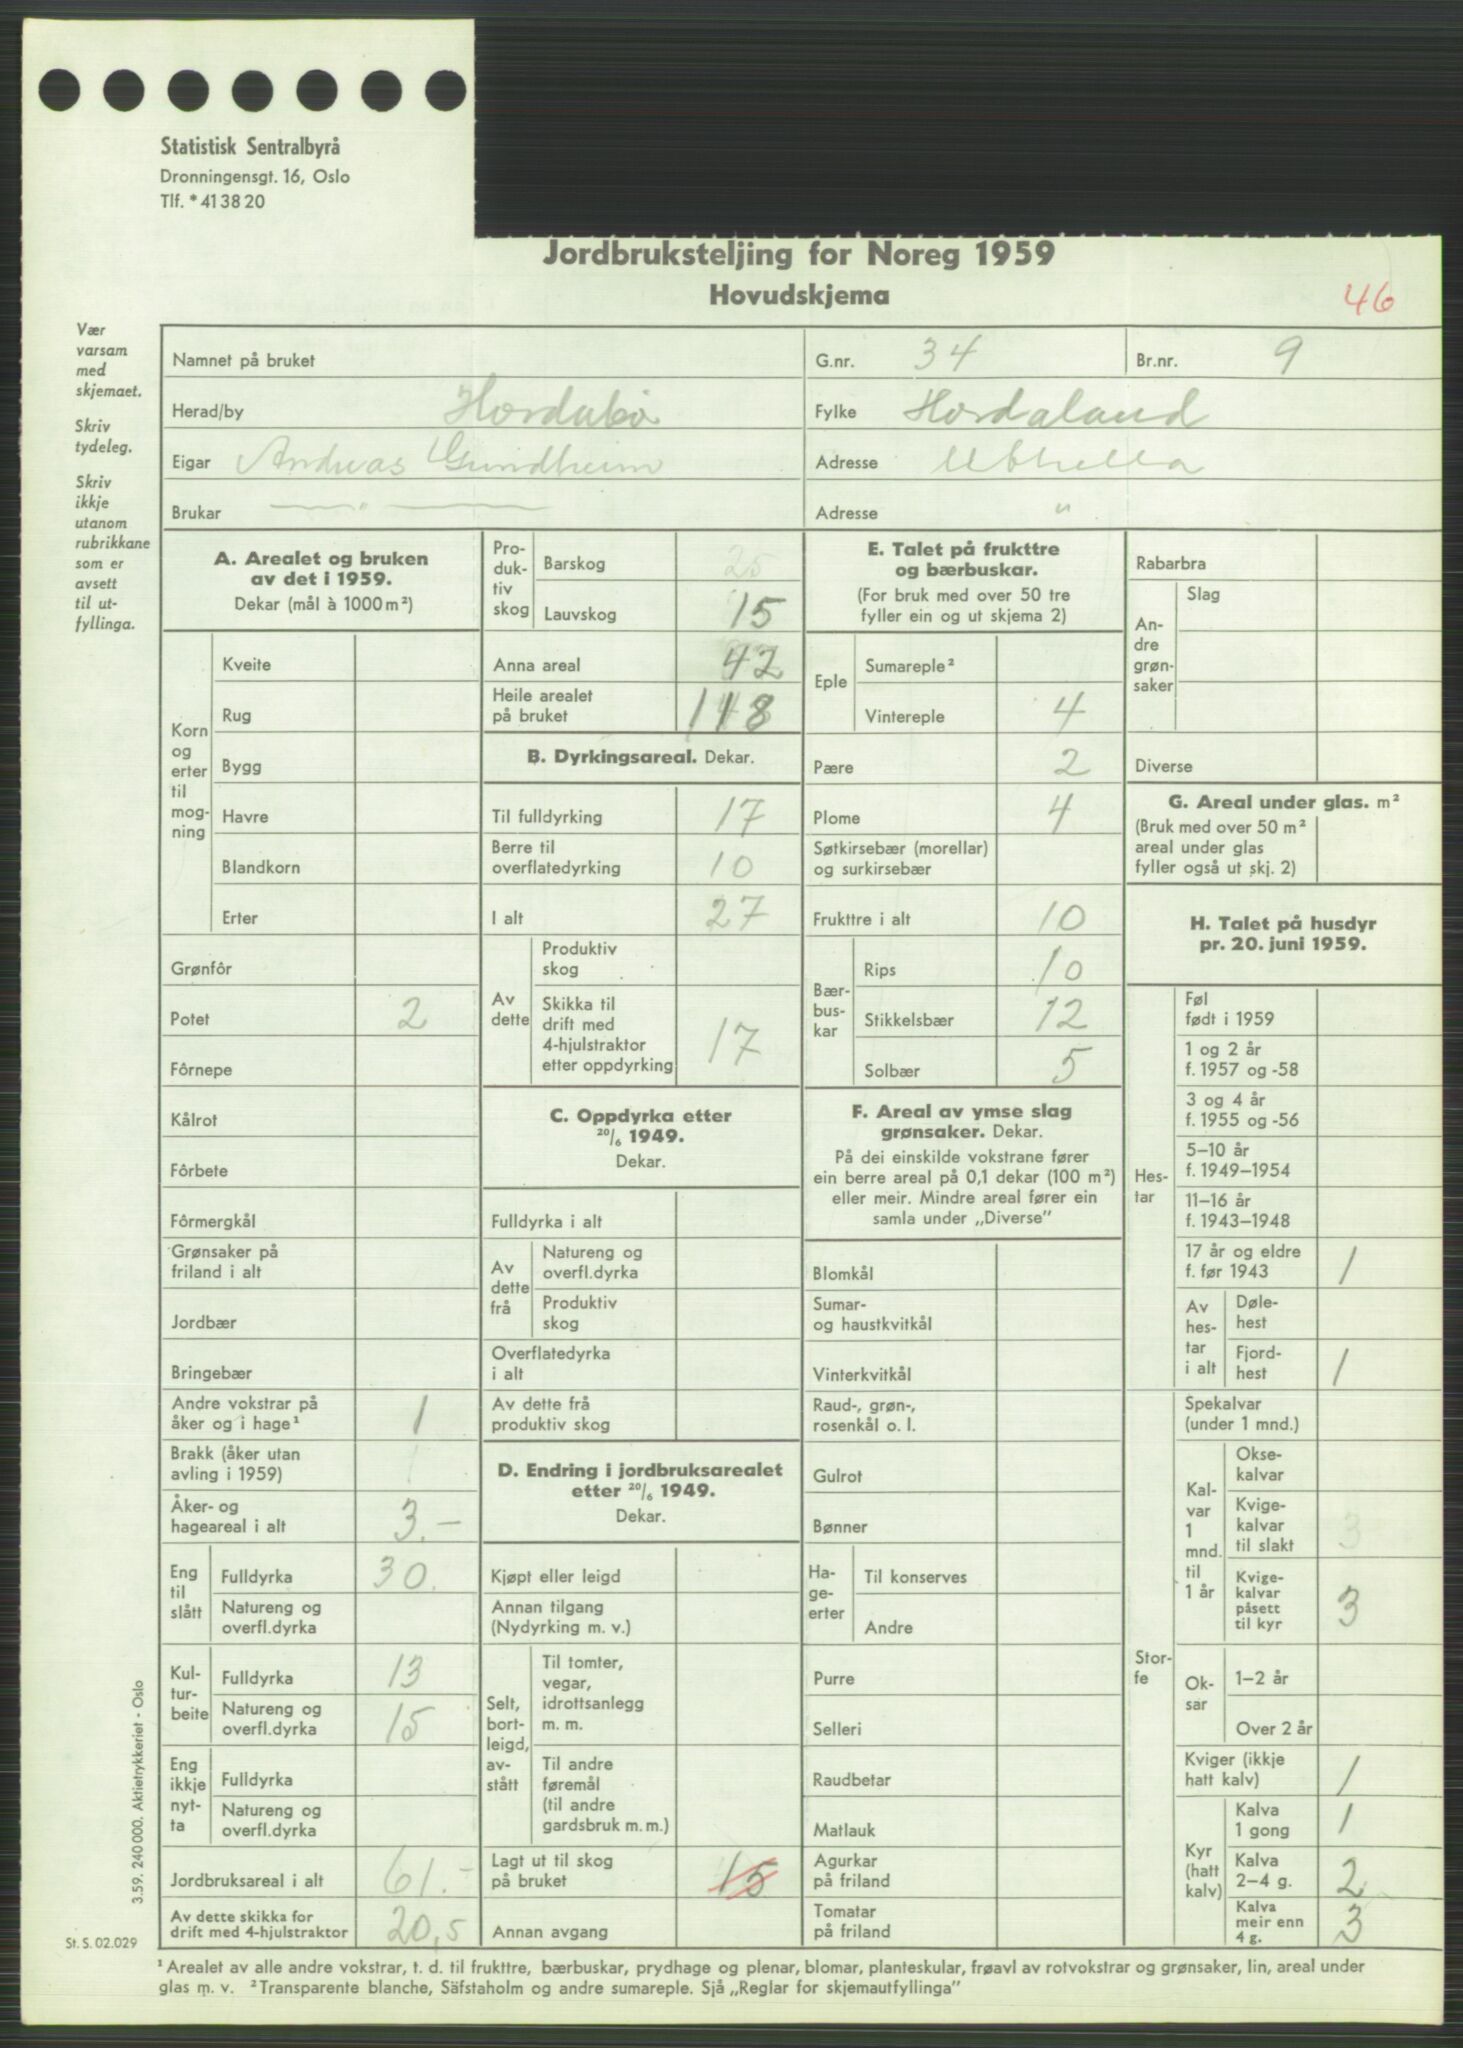 Statistisk Sentralbyrå
Dronningensgt. 16, Oslo
Tlf. *413820
Jordbruksteljing for Noreg 1959
Hovudskjema
46
Vær
varsam
med
skjemaet.
Skriv
tydeleg.
Skriv
ikkje
utanom
rubrikkane
som er
avsett
til ut-
fyllinga.
Namnet på bruket
G.nr. 34
Br.nr. 9
Herad/by Hordabø
Fylke Hordaland
Eigar Andreas Gundheim
Adresse
Brukar — " —
Adresse "
A. Arealet og bruken
av det i 1959.
Dekar (mål à 1000 m²)
Korn
og
erter
til
mog-
ning
Kveite
Rug
Bygg
Havre
Blandkorn
Erter
Grønfôr
Potet 2
Fôrnepe
Kålrot
Fôrbete
Fôrmergkål
Grønsaker på
friland i alt
Jordbær
Bringebær
Andre vokstrar på
åker og i hage¹ 1
Brakk (åker utan
avling i 1959)
Åker- og
hageareal i alt 3.—
Eng
til
slått
Fulldyrka 30.
Natureng og
overfl.dyrka
Kul-
tur-
beite
Fulldyrka 13
Natureng og
overfl.dyrka 15
Eng
ikkje
nyt-
ta
Fulldyrka
Natureng og
overfl.dyrka
Jordbruksareal i alt 61.-
Av dette skikka for
drift med 4-hjulstraktor 20,5
Pro-
duk-
tiv
skog
Barskog 25
Lauvskog 15
Anna areal 42
Heile arealet
på bruket 118
B. Dyrkingsareal. Dekar.
Til fulldyrking 17
Berre til
overflatedyrking 10
I alt 27
Av
dette
Produktiv
skog
Skikka til
drift med
4-hjulstraktor
etter oppdyrking 17
C. Oppdyrka etter
20/6 1949.
Dekar.
Fulldyrka i alt
Av
dette
frå
Natureng og
overfl.dyrka
Produktiv
skog
Overflatedyrka
i alt
Av dette frå
produktiv skog
D. Endring i jordbruksarealet
etter 20/6 1949.
Dekar.
Kjøpt eller leigd
Annan tilgang
(Nydyrking m. v.)
Selt,
bort-
leigd,
av-
stått
Til tomter,
vegar,
idrottsanlegg
m. m.
Til andre
føremål
(til andre
gardsbruk m. m.)
Lagt ut til skog
på bruket 15
Annan avgang
E. Talet på frukttre
og bærbuskar.
(For bruk med over 50 tre
fyller ein og ut skjema 2)
Eple
Sumareple²
Vintereple 4
Pære 2
Plome 4
Søtkirsebær (morellar)
og surkirsebær
Frukttre i alt 10
Bær-
bus-
kar
Rips 10
Stikkelsbær 12
Solbær 5
F. Areal av ymse slag
grønsaker. Dekar.
På dei einskilde vokstrane fører
ein berre areal på 0,1 dekar (100 m²)
eller meir. Mindre areal fører ein
samla under „Diverse”
Blomkål
Sumar-
og haustkvitkål
Vinterkvitkål
Raud-, grøn-,
rosenkål o. l.
Gulrot
Bønner
Ha-
ge-
erter
Til konserves
Andre
Purre
Selleri
Raudbetar
Matlauk
Agurkar
på friland
Tomatar
på friland
Rabarbra
An-
dre
grøn-
saker
Slag
Diverse
G. Areal under glas. m²
(Bruk med over 50 m²
areal under glas
fyller også ut skj. 2)
H. Talet på husdyr
pr. 20. juni 1959.
Hes-
tar
Føl
født i 1959
1 og 2 år
f. 1957 og -58
3 og 4 år
f. 1955 og -56
5–10 år
f. 1949–1954
11–16 år
f. 1943–1948
17 år og eldre
f. før 1943 1
Av
hes-
tar
i alt
Døle-
hest
Fjord-
hest 1
Stor-
fe
Spekalvar
(under 1 mnd.)
Kal-
var
1
mnd.
til
1 år
Okse-
kalvar
Kvige-
kalvar
til slakt 3
Kvige-
kalvar
påsett
til kyr 3
Ok-
sar
1–2 år
Over 2 år
Kviger (ikkje
hatt kalv) 1
Kyr
(hatt
kalv)
Kalva
1 gong 1
Kalva
2–4 g. 2
Kalva
meir enn
4 g. 3
3.59. 240000. Aktietrykkeriet - Oslo
St. S. 02.029
¹ Arealet av alle andre vokstrar, t. d. til frukttre, bærbuskar, prydhage og plenar, blomar, planteskular, frøavl av rotvokstrar og grønsaker, lin, areal under
glas m. v. ² Transparente blanche, Säfstaholm og andre sumareple. Sjå „Reglar for skjemautfyllinga”